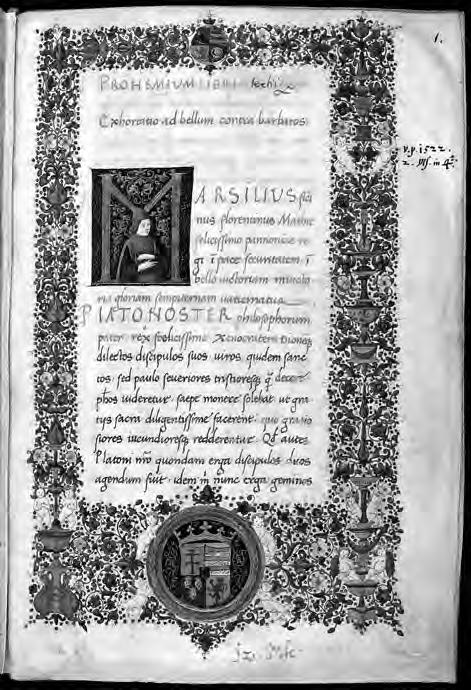 1.
PROHEMIUM LIBRI
Exhortatio ad bellum contra barbaros.
v.p. 1522.
MARSILIUS fici
nus florentinus Mathie
felicissimo pannonie re
gi ī pace securitatem ī
bello victoriam
ria gloriam sempiternam vaticinatur
PLATO NOSTER philosophorum
pater rex foelicissime Xenocratem
dilectos discipulos suos uiros quidem sanc
tos sed paulo seueriores tristioresq
phōs uideretur saepe monere solebat ut gra
tijs sacra diligentissime facerent quo gratio
siores iucundioresq redderentur Qd autes
Platoni nrō quondam erga discipulos duos
agendum fuit idem m nunc erga geminos